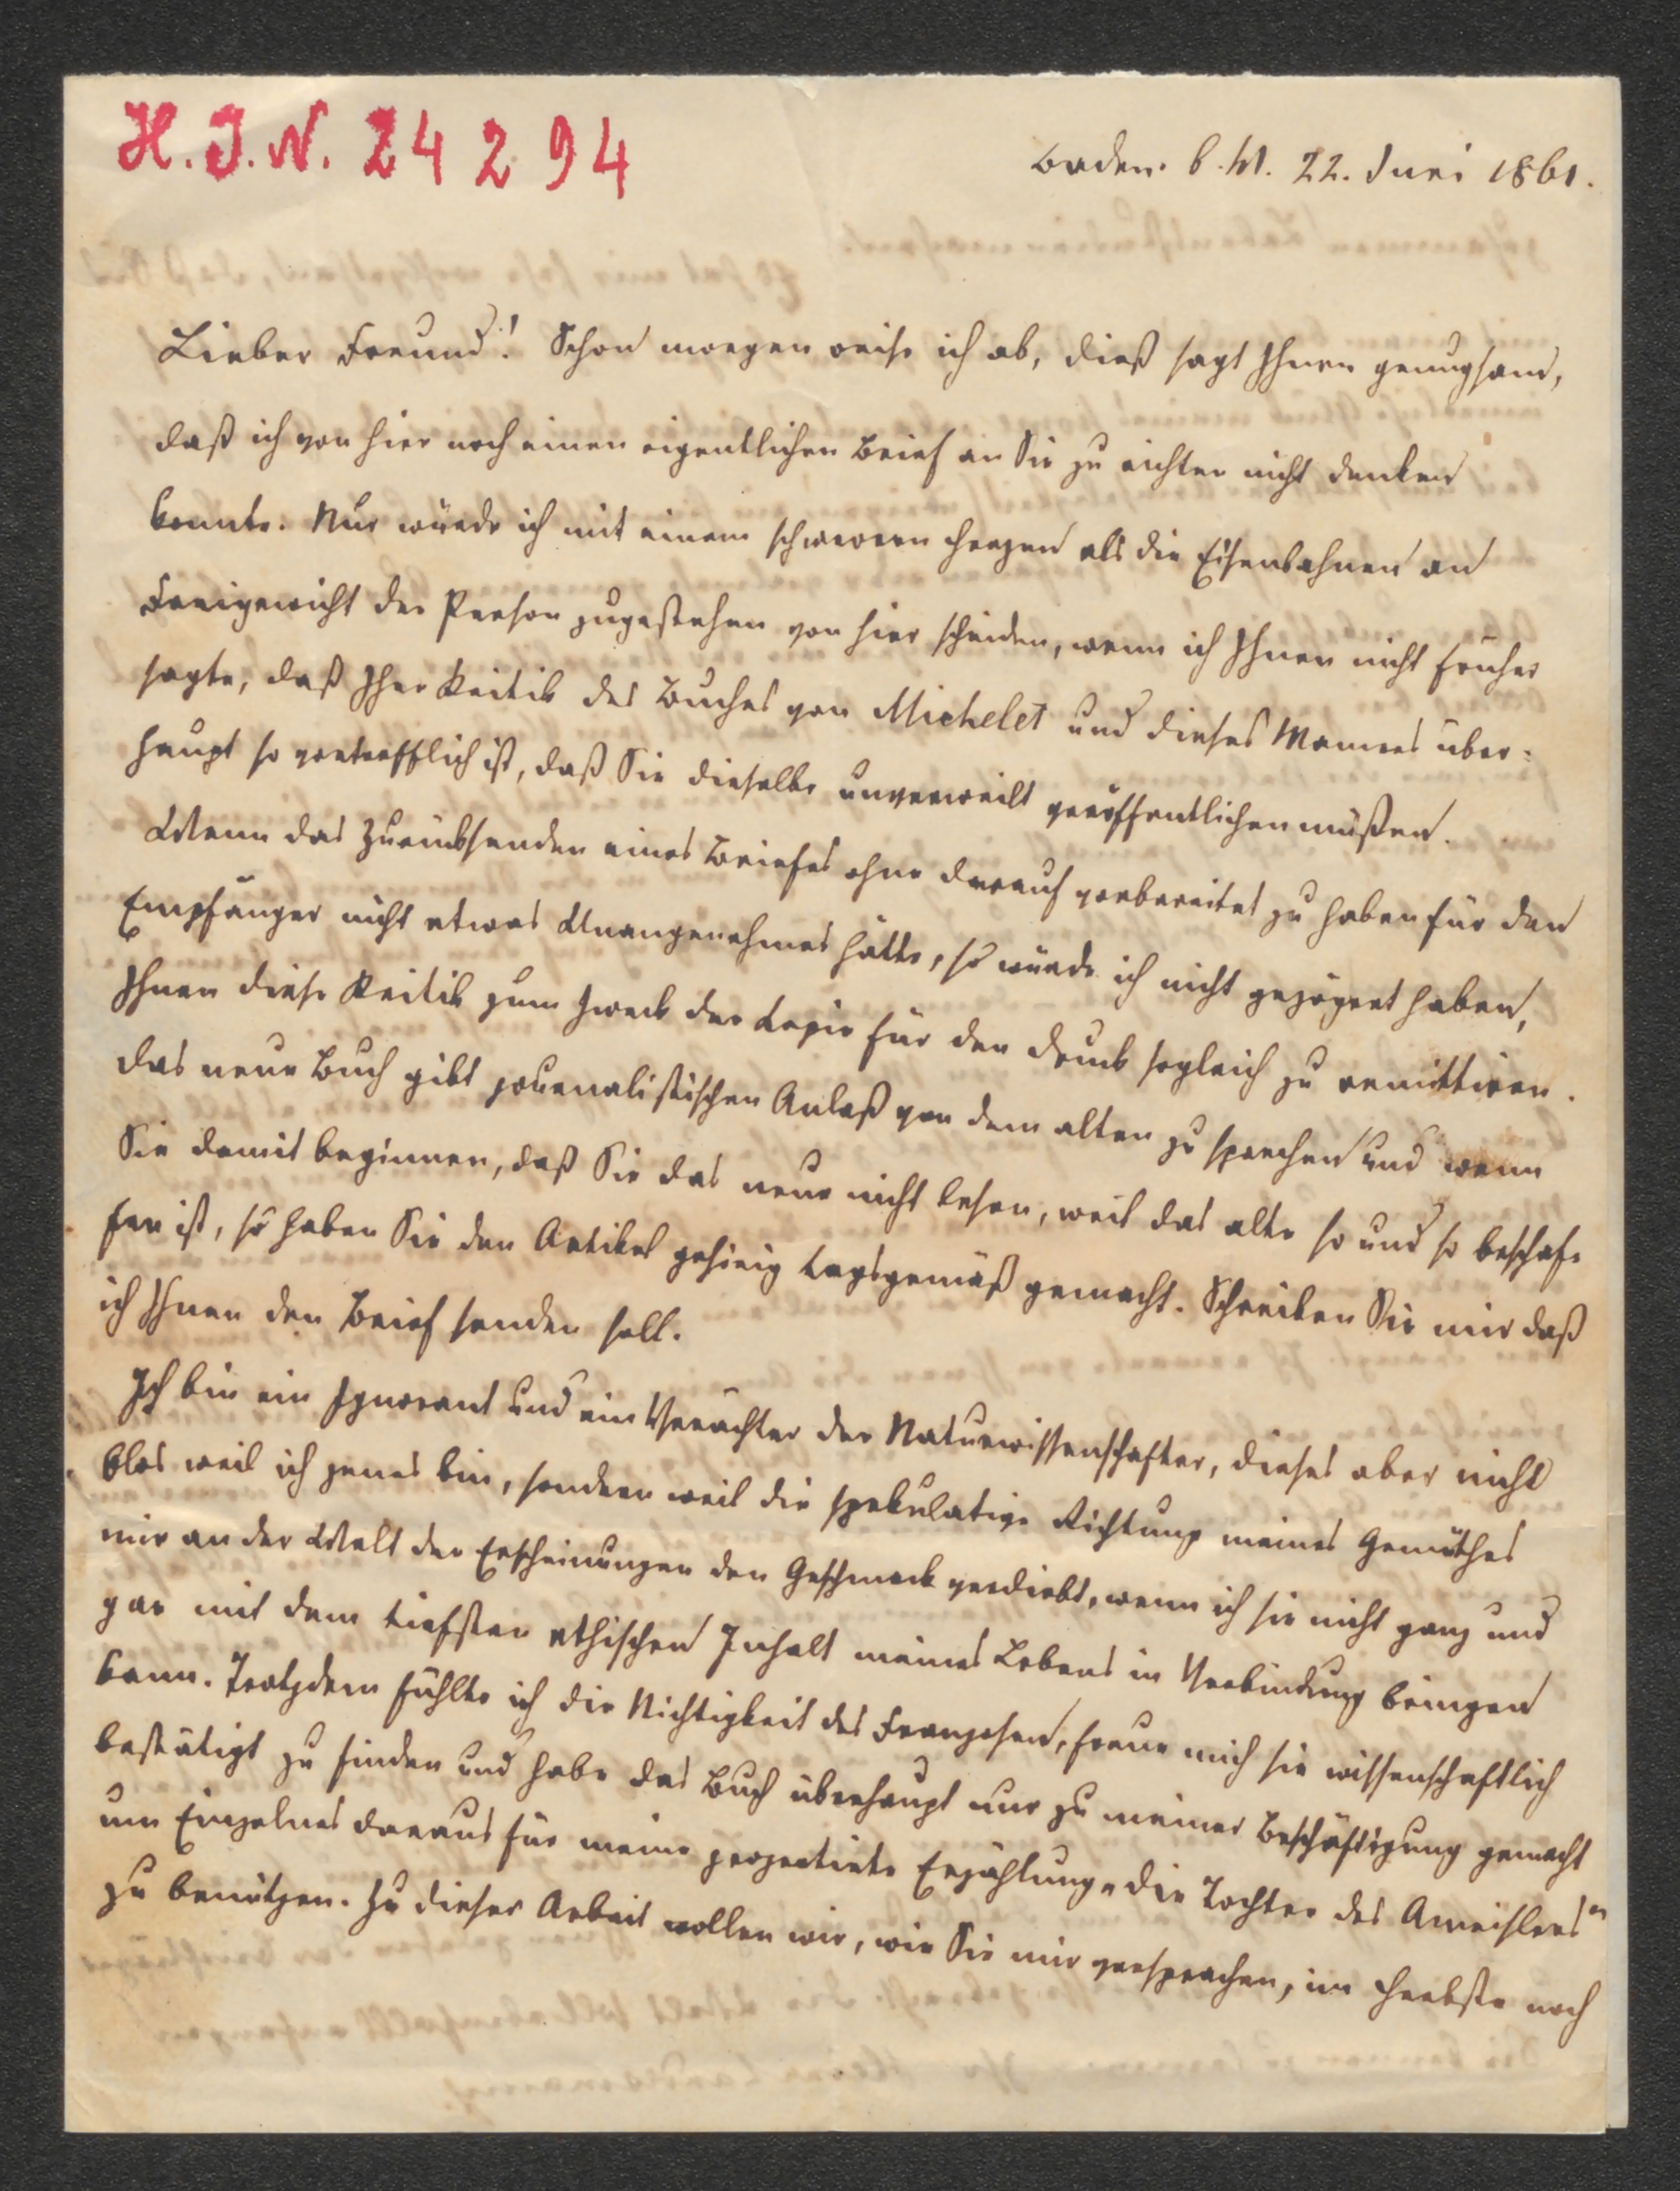 H. J. N. 24 294
Baden. b. W. 22. Juni 1861.
Lieber Freund! Schon morgen reise ich ab, dieß sagt Ihnen genugsam,
daß ich von hier noch einen eigentlichen Brief an Sie zu richten nicht denken
konnte. Nur würde ich mit einem schwerern Herzen als die Eisenbahnen an
Freigewicht der Person zugestehen von hier scheiden, wenn ich Ihnen nicht früher
sagte, daß Ihre Kritik des Buches von Michelet und dieses Mannes über-
haupt so vortrefflich ist, daß Sie dieselbe unverweilt veröffentlichen müßen.
Wenn das Zurücksenden eines Briefes ohne darauf vorbereitet zu haben für den
Empfänger nicht etwas Unangenehmes hätte, so würde ich nicht gezögert haben,
Ihnen diese Kritik zum Zweck der Kopie für den Druck sogleich zu remittiren.
Das neue Buch gibt journalistischen Anlaß von dem alten zu sprechen und wenn
Sie damit beginnen, daß Sie das neue nicht lesen, weil das alte so und so beschaf-
fen ist, so haben Sie den Artikel gehörig tagsgemäß gemacht. Schreiben Sie mir daß
ich Ihnen den Brief senden soll.
Ich bin ein Ignorant und ein Verächter der Naturwissenschaften, dieses aber nicht
blos weil ich jenes bin, sondern weil die spekulative Richtung meines Gemüthes
mir an der Welt der Erscheinungen den Geschmack verdirbt, wenn ich sie nicht ganz und
gar mit dem tiefsten ethischen Inhalt meines Lebens in Verbindung bringen
kann. Trotzdem fühlte ich die Nichtigkeit des Franzosen, freue mich sie wissenschaftlich
bestätigt zu finden und habe das Buch überhaupt nur zu meiner Beschäftigung gemacht
um Einzelnes daraus für meine projectirte Erzählung „die Tochter des Ameislers"
zu benützen. Zu dieser Arbeit wollen wir, wie Sie mir versprachen, im Herbste noch